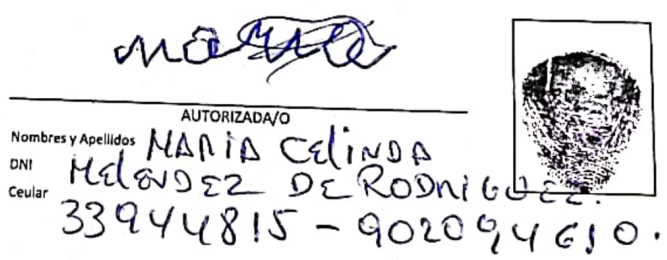 maria
AUTORIZADA/O
Nombres y Apellidos MARIA CELINDA
DNI MELENDEZ DE RODRIGUEZ.
Ceular 33944815 - 902094610.